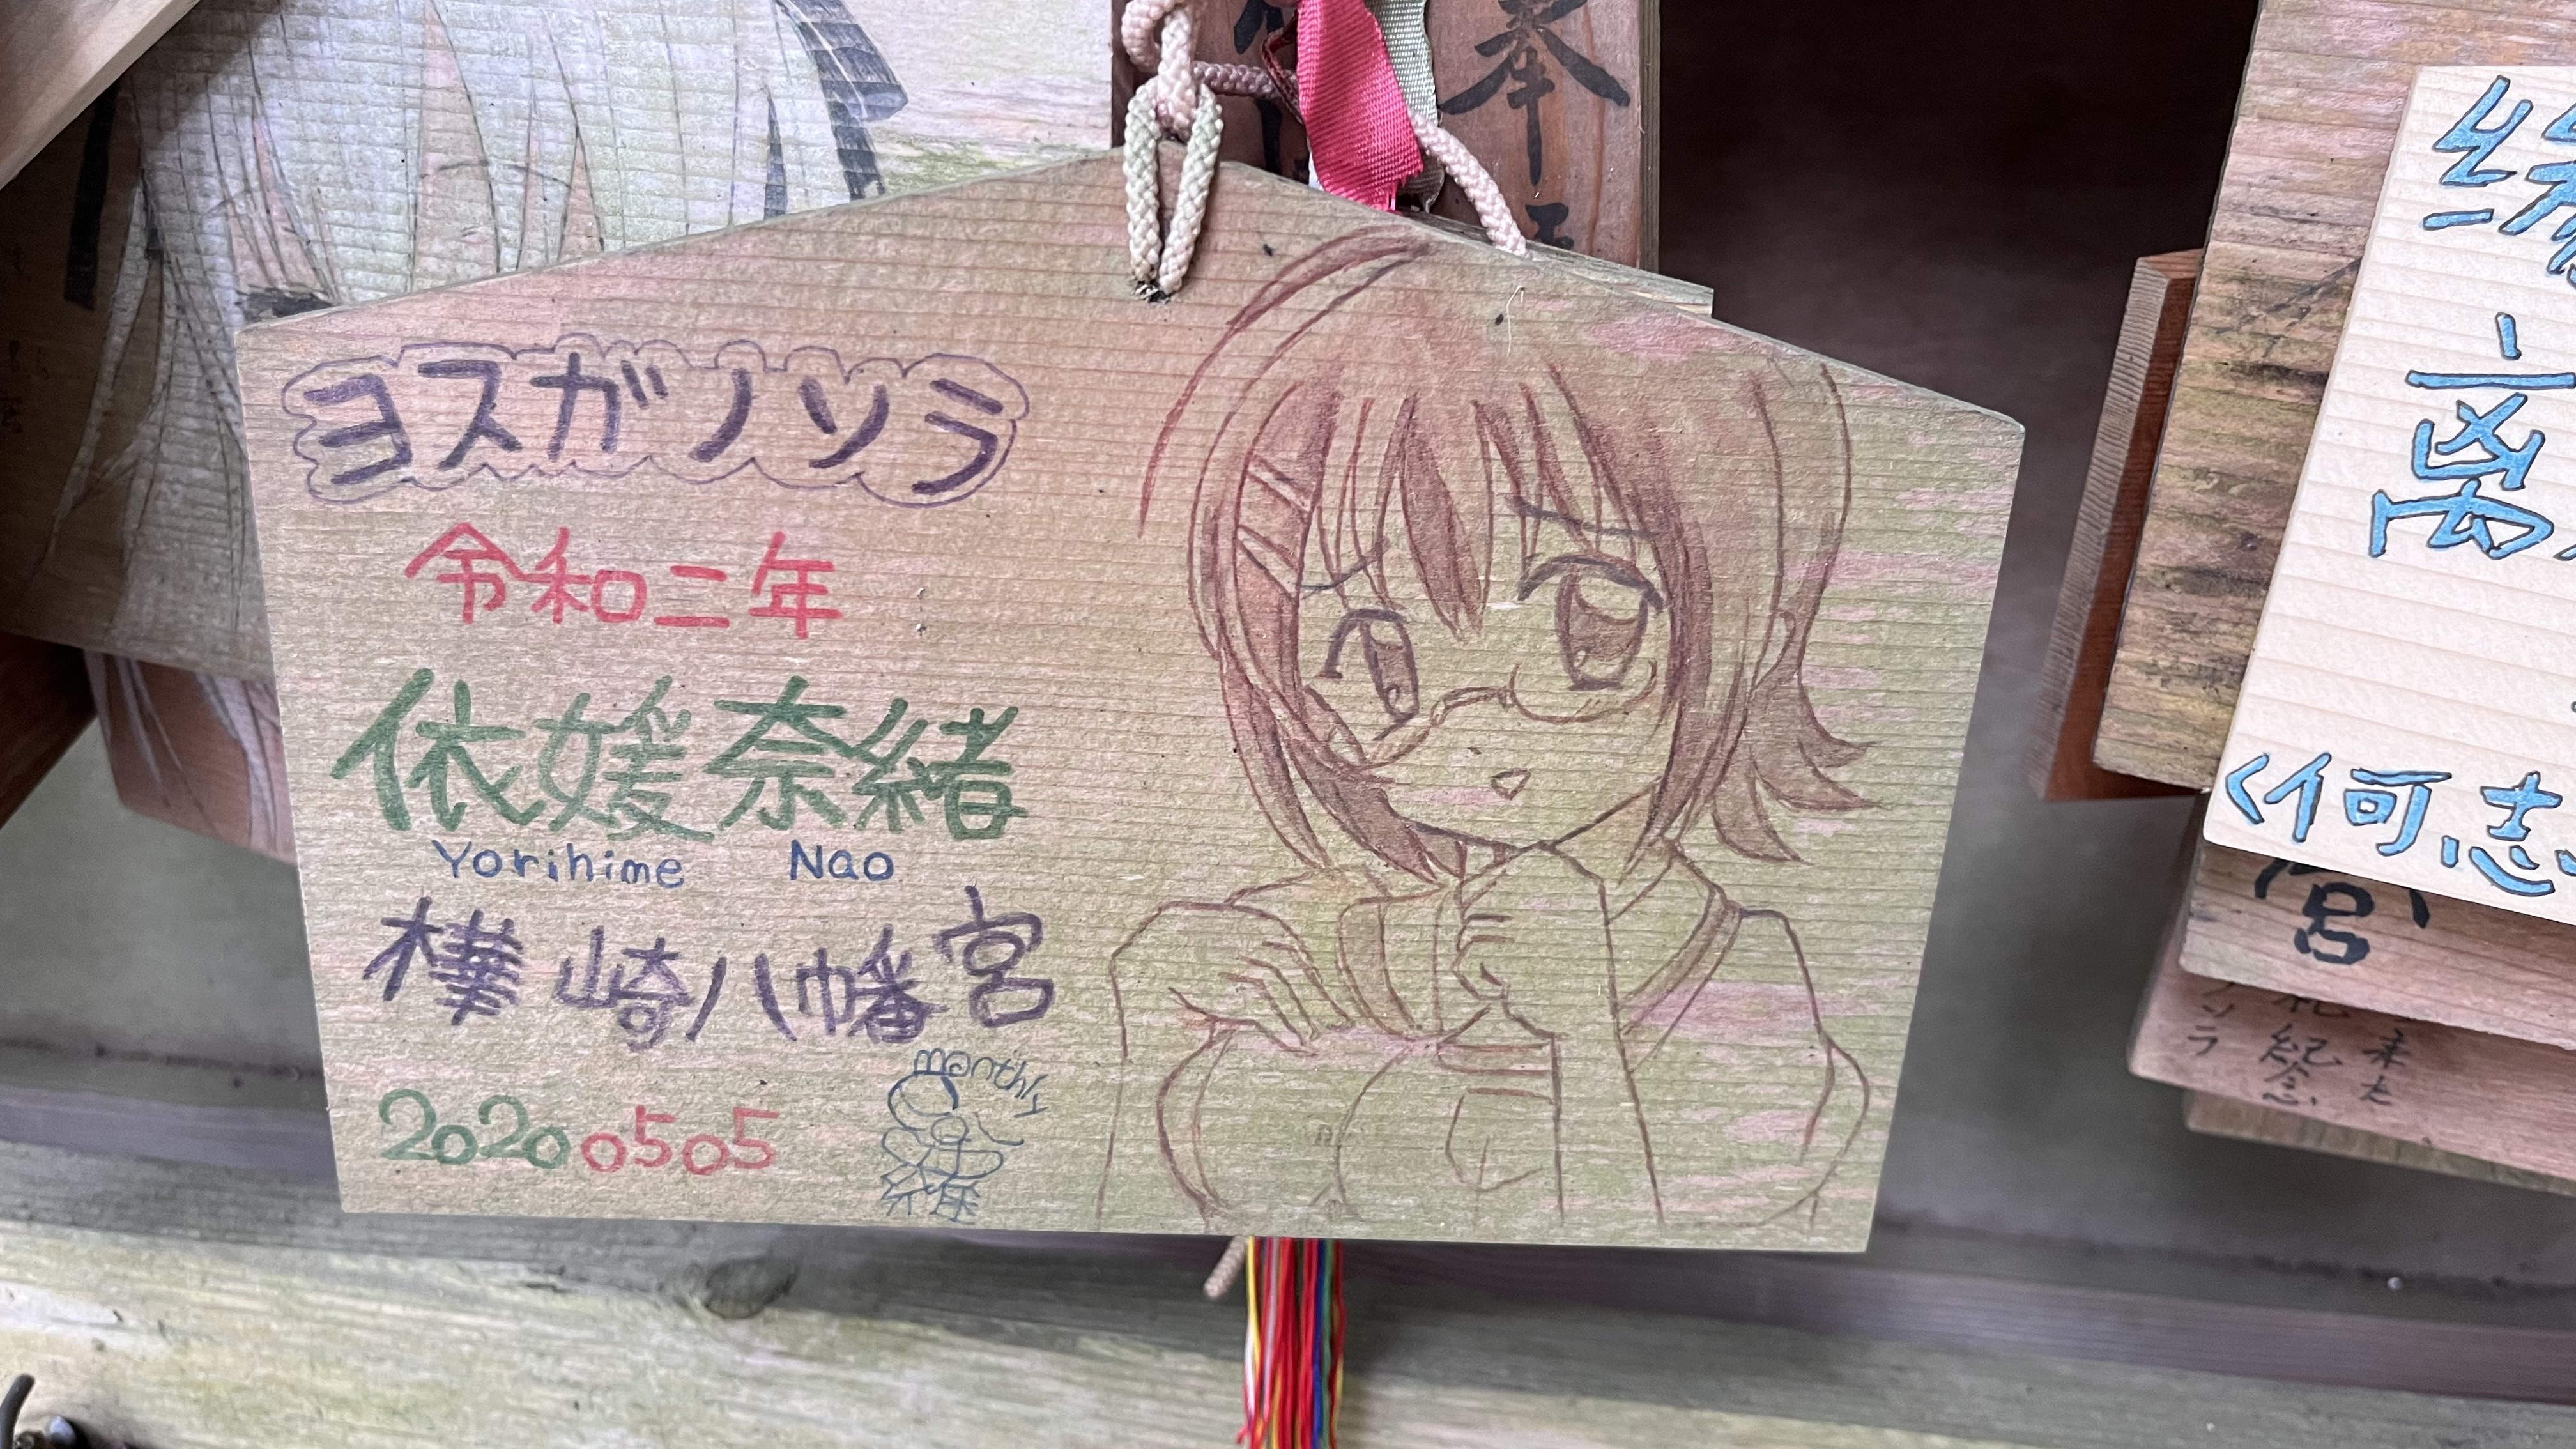 ヨスガノソラ
令和二年
依媛奈緒
Yorihime Nao
樺崎八幡宮
20200505
monthly
奉
縁
離
<何志
宮
ソラ
紀念